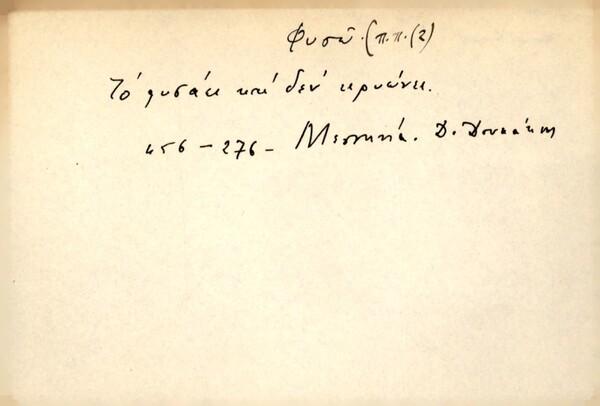 Φυσῶ. (π.π. (2)
Τό φυσάει καί δέν κρυώνει.
456 - 276 - Μεσσηνία. Δ. Δουκάκης